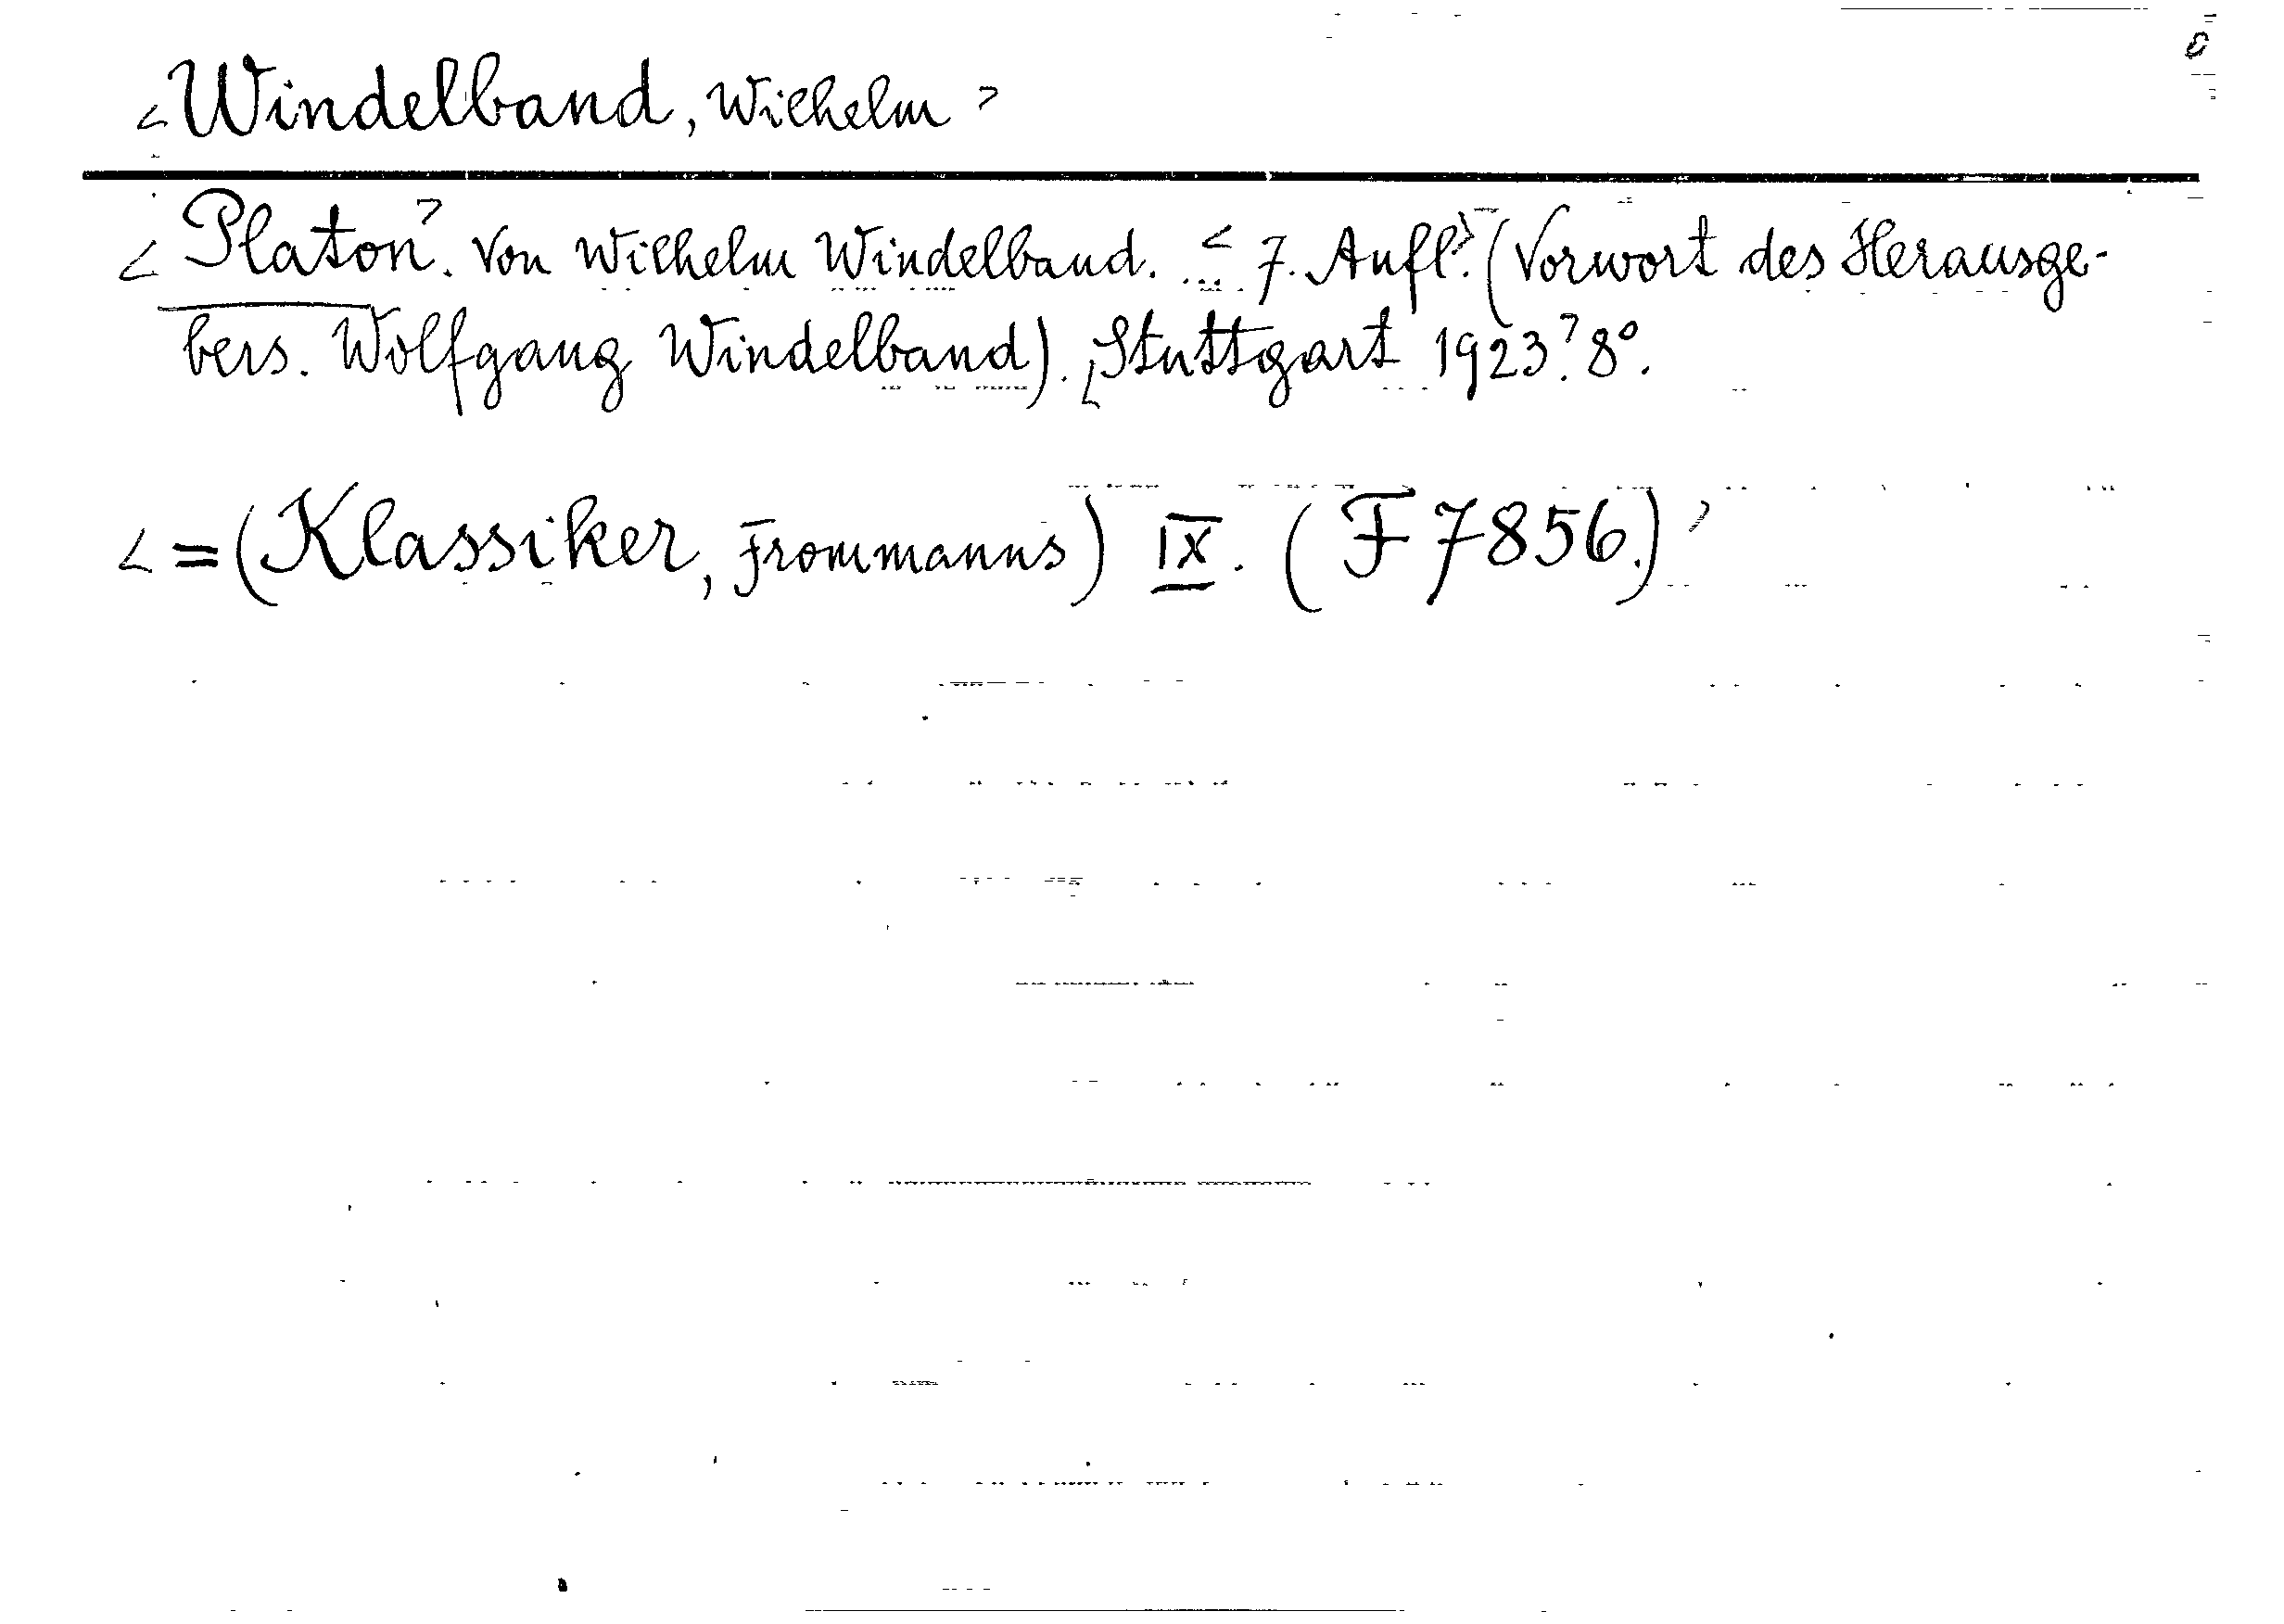 <Windelband, Wilhelm>
<Platon>. Von Wilhelm Windelband. ... <7. Aufl.> (Vorwort des Herausge-
bers. Wolfgang Windelband). <Stuttgart 1923>. 8°.
<=(Klassiker, Frommanns) IX. (F 7856.)>